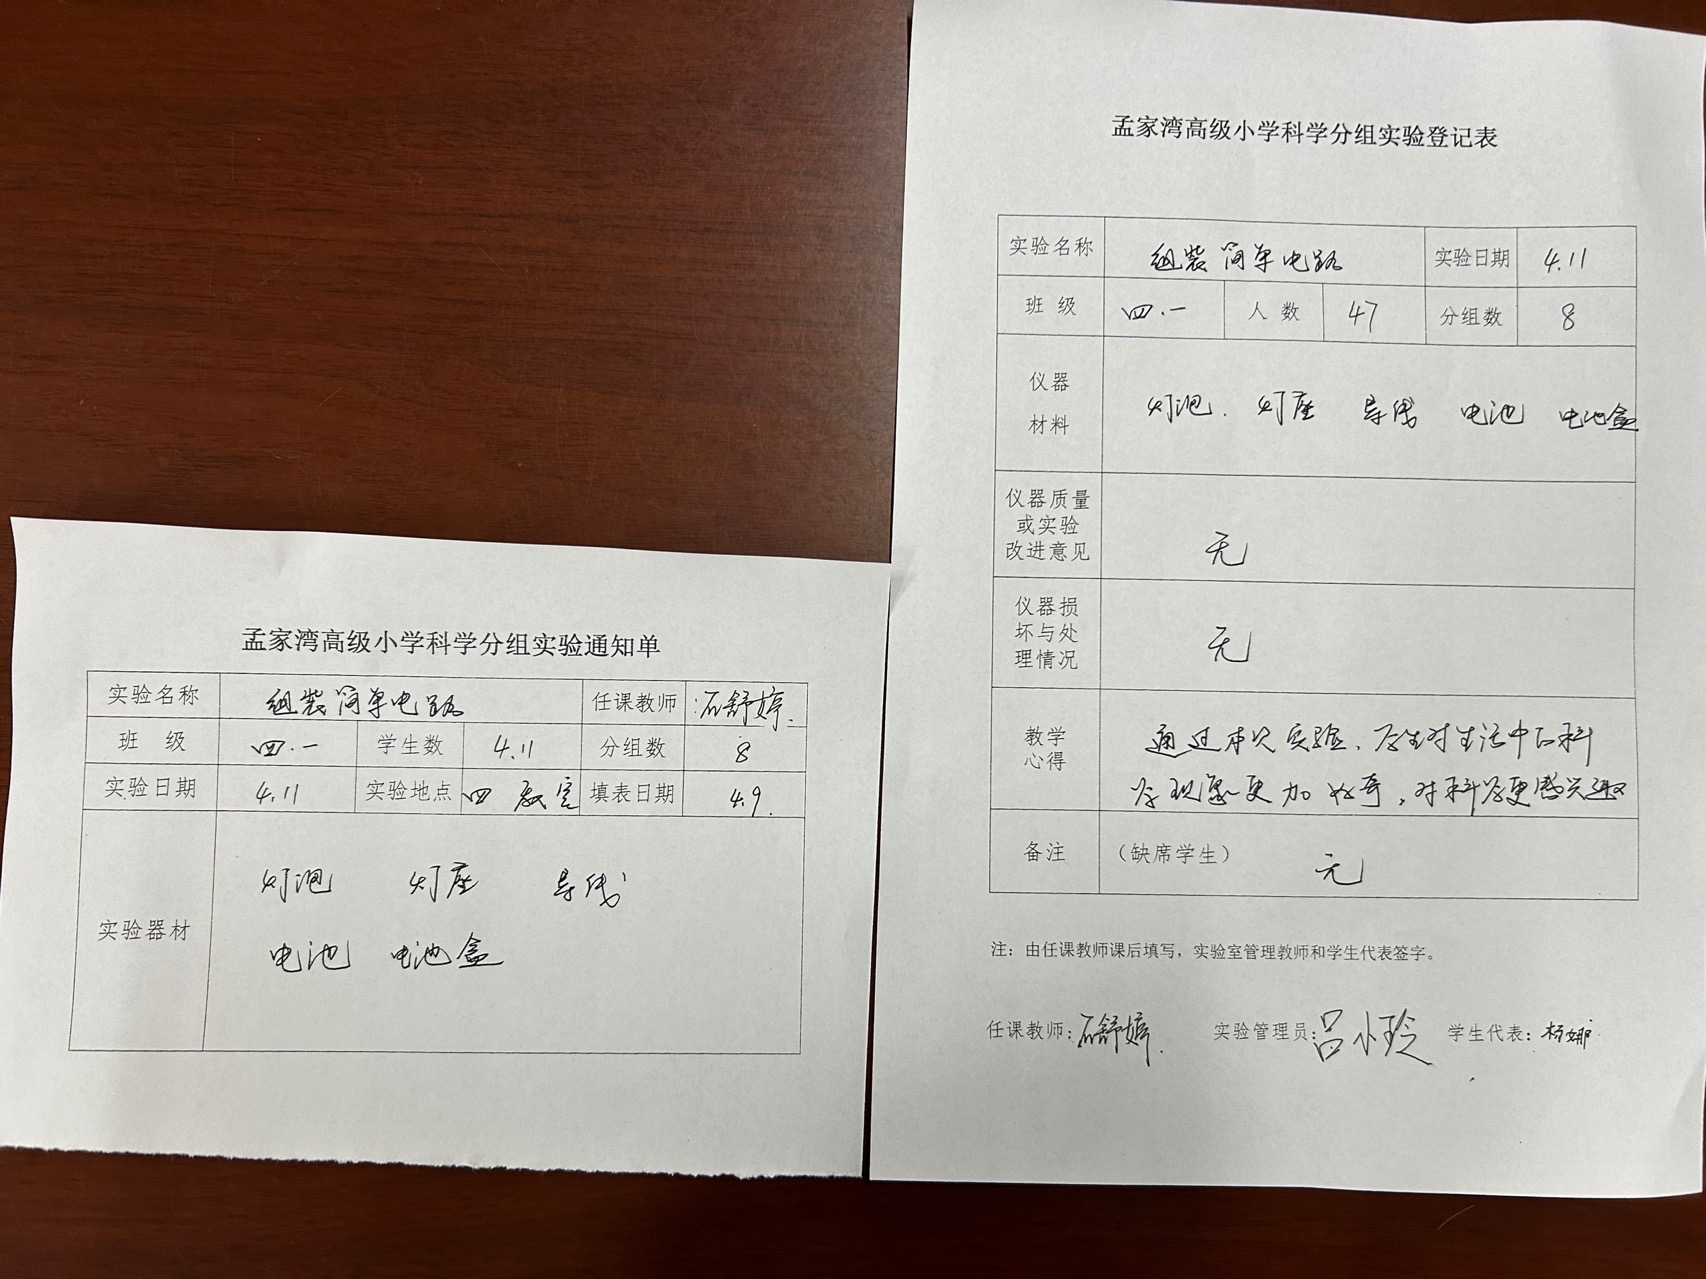 孟家湾高级小学科学分组实验通知单
实验名称 组装简单电路 任课教师 :石舒婷.
班 级 四.一 学生数 4.11 分组数 8
实验日期 4.11 实验地点 四 教室 填表日期 4.9.
实验器材
灯泡 灯座 导线
电池 电池盒
孟家湾高级小学科学分组实验登记表
实验名称 组装简单电路 实验日期 4.11
班 级 四.一 人 数 47 分组数 8
仪器
材料
灯泡. 灯座 导线 电池 电池盒
仪器质量
或实验
改进意见
无
仪器损
坏与处
理情况
无
教学
心得
通过本次实验,学生对生活中的科
学现象更加好奇,对科学更感兴趣
备注 (缺席学生) 无
注：由任课教师课后填写，实验室管理教师和学生代表签字。
任课教师:石舒婷. 实验管理员:吕小玲 学生代表:杨娜